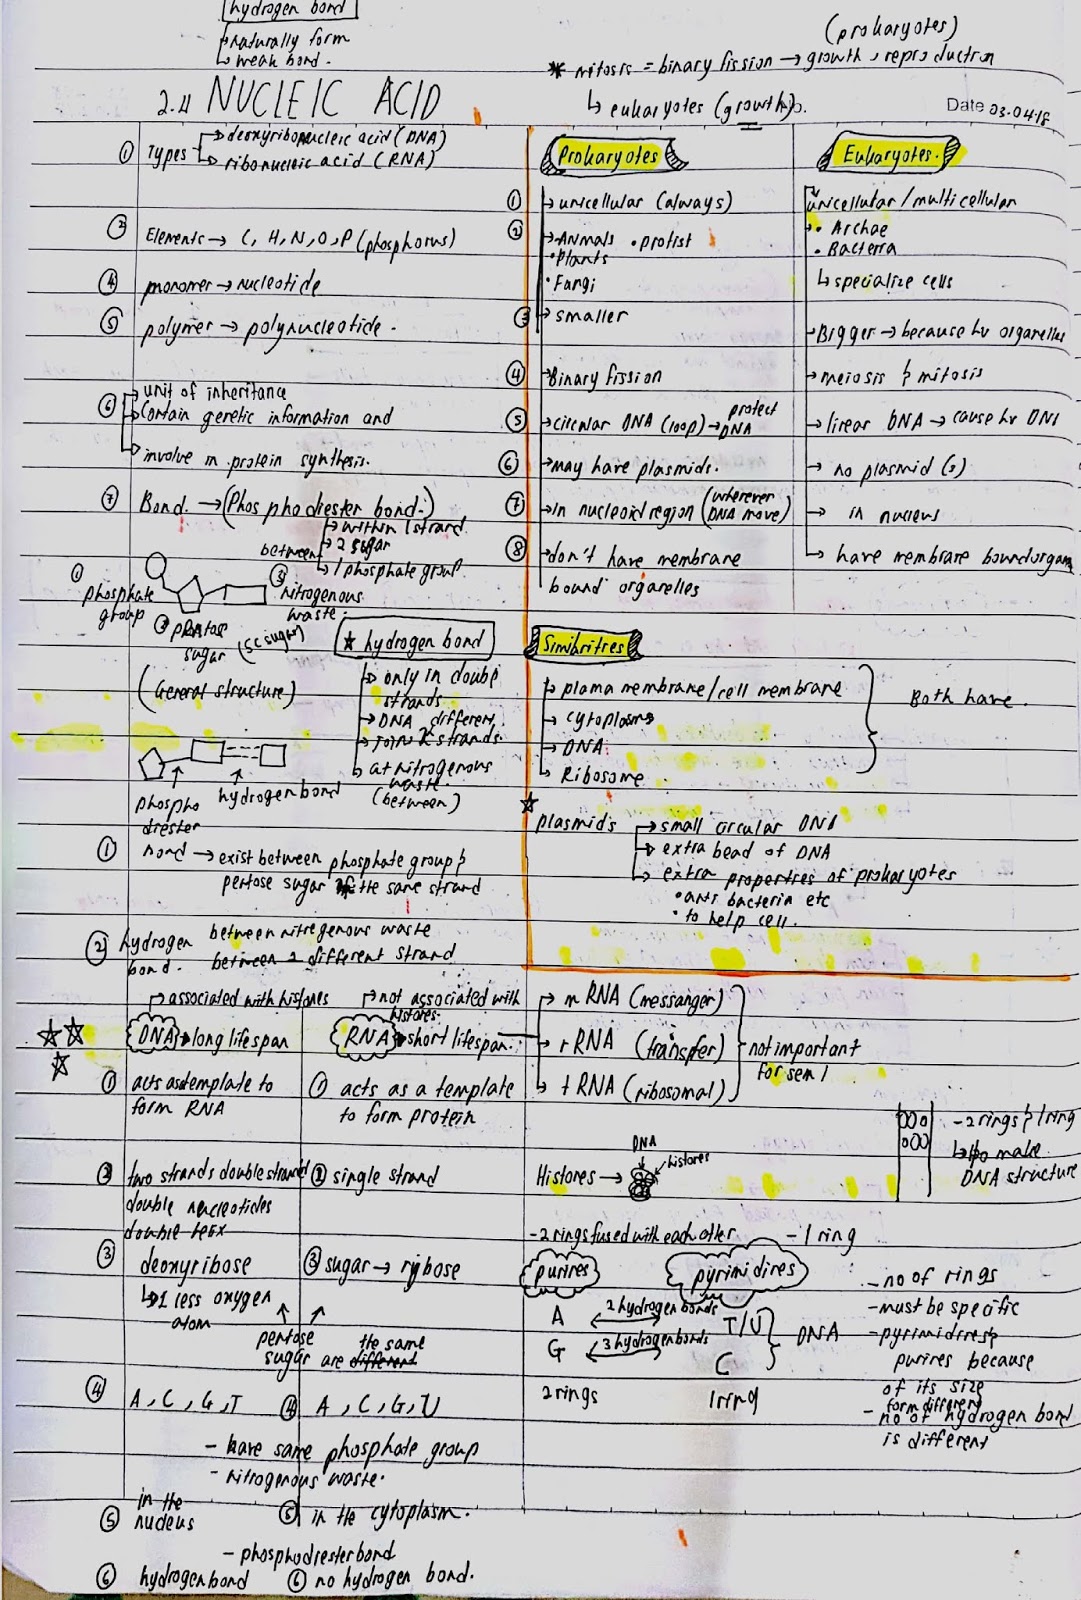 hydrogen bond
naturally form
weak bond.
(prokaryotes)
* mitosis = binary fission → growth, reproduction
↳ eukaryotes (growth).
2.4 NUCLEIC ACID
Date 03.04.18
① Types → deoxyribonucleic acid (DNA)
→ ribonucleic acid (RNA)
② Elements → C, H, N, O, P (phosphorus)
④ monomer → nucleotide
⑤ polymer → polynucleotide.
⑥ → unit of inheritance
→ Contain genetic information and
→ involve in protein synthesis.
⑦ Bond. → (Phosphodiester bond.)
→ within 1 strand
between → 2 sugar
→ 1 phosphate group.
① phosphate group
② pentose sugar (5C sugar)
③ nitrogenous waste.
(General structure)
★ hydrogen bond
→ only in double
strands.
→ DNA different.
→ Join 2 strands.
→ at nitrogenous
waste.
(between)
phospho
diester
hydrogen bond
① bond → exist between phosphate group &
pentose sugar of the same strand
② hydrogen between nitrogenous waste
bond. between 2 different strand
Prokaryotes
① → unicellular (always)
② → Animals • protist
• Plants
• Fungi
③ → smaller
④ → Binary fission
⑤ → circular DNA (loop) → protect
DNA
⑥ → may have plasmids.
⑦ → in nucleoid region (wherever
DNA move)
⑧ → don't have membrane
bound organelles
Eukaryotes.
unicellular / multicellular
→ • Archae
• Bacteria
↳ specialize cells
→ Bigger → because hv organelles
→ meiosis & mitosis
→ linear DNA → cause hv DNA
→ no plasmid(s)
→ in nucleus
→ have membrane bound organ
Similiritres
→ plama membrane / cell membrane
→ cytoplasm
→ DNA
→ Ribosome.
Both have.
★ plasmids → small circular DNA
→ extra bead of DNA
→ extra properties of prokaryotes
• anti bacteria etc
• to help cell.
→ associated with histones
DNA → long lifespan
→ not associated with
histones.
RNA → short lifespan.
→ mRNA (messanger)
→ rRNA (transfer)
→ tRNA (ribosomal)
not important
for sem 1
① acts as template to
form RNA
① acts as a template
to form protein
② two strands double strand
double nucleotides
double helix
② single strand
③ deoxyribose
↳ 1 less oxygen
atom
③ sugar → ribose
pentose
sugar are different the same
④ A, C, G, T
④ A, C, G, U
- have same phosphate group
- nitrogenous waste.
⑤ in the
nucleus
⑤ in the cytoplasm.
- phosphodiester bond
⑥ hydrogen bond
⑥ no hydrogen bond.
DNA
Histones → histones
- 2 rings & 1 ring
↳ to make
DNA structure
- 2 rings fused with each other
purines
- 1 ring
pyrimidines
A 2 hydrogen bonds T/U
G 3 hydrogen bonds C
DNA
2 rings
1 ring
- no of rings
- must be specific
- pyrimidines &
purines because
of its size
form different
- no of hydrogen bond
is different